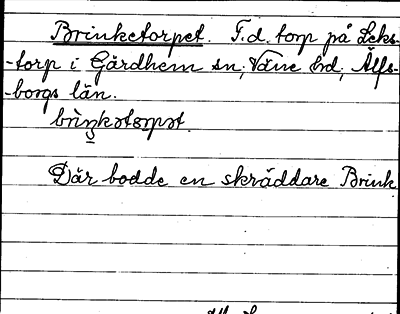 Brinketorpet. F.d. torp på Leks-
-torp i Gärdhem sn, Väne hd, Älfs-
-borgs län.
Där bodde en skräddare Brink